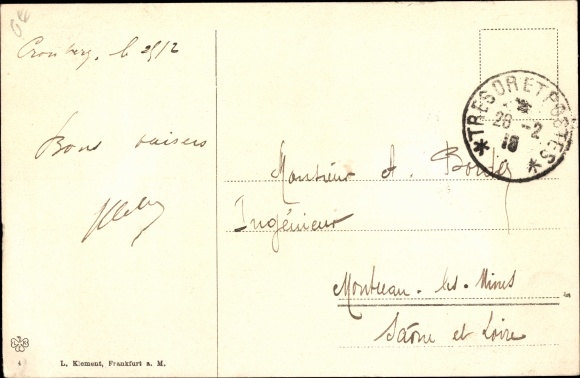 Cronberg, le 25/2
Bons baisers
TRESOR ET POSTES
26 -2
Monsieur A.
Ingénieur
Montceau-les-Mines
Saône et Loire
4
L. Klement, Frankfurt a. M.